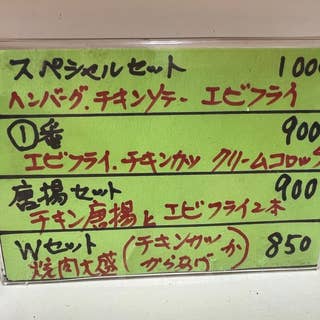 スペシャルセット 1000
ハンバーグ.チキンソテー エビフライ
①番 900
エビフライ.チキンカツ クリームコロッケ
唐揚セット 900
チキン唐揚と エビフライ2本
Wセット 850
焼肉大盛(チキンカツ か からあげ)